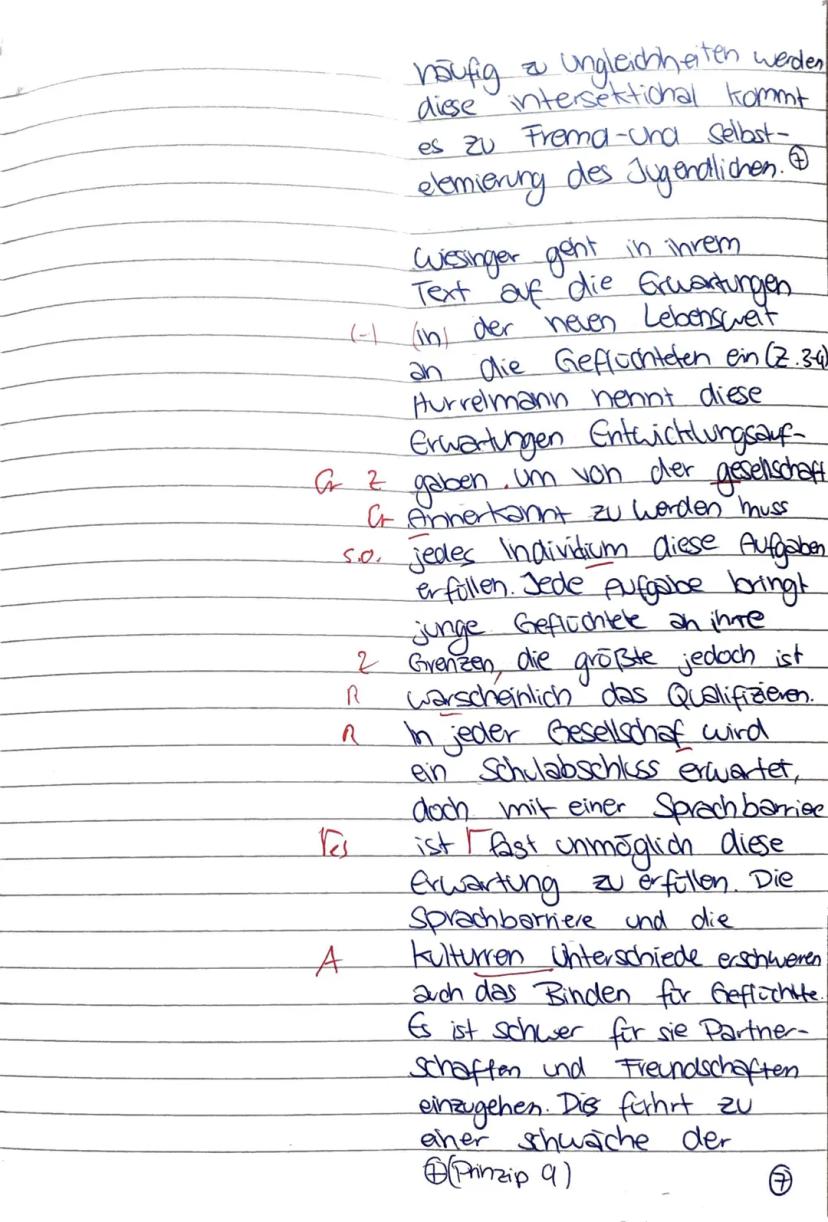 häufig zu Ungleichheiten werden
diese intersektional kommt
es zu Fremd-und Selbst-
elemierung des Jugendlichen. ⊕
Wiesinger geht in ihrem
Text auf die Erwartungen
(-) (in) der neuen Lebenswelt
an die Geflüchteten ein (Z.3-4)
Hurrelmann nennt diese
Erwartungen Entwicklungsauf-
Gr Z gaben. um von der gesellschaft
Gr Annerkannt zu werden muss
s.o. jedes Individium diese Aufgaben
erfüllen. Jede Aufgabe bringt
junge Geflüchtete an ihre
Z Grenzen, die größte jedoch ist
R warscheinlich das Qualifizieren.
R In jeder Gesellschaf wird
ein Schulabschluss erwartet,
doch mit einer Sprachbarriee
Γes ist Γ fast unmöglich diese
Erwartung zu erfüllen. Die
Sprachbarriere und die
A kulturren Unterschiede erschweren
auch das Binden für Geflüchtete.
Es ist schwer für sie Partner-
schaften und Freundschaften
einzugehen. Dies führt zu
einer schwäche der
⊕(Prinzip 9) ⑦